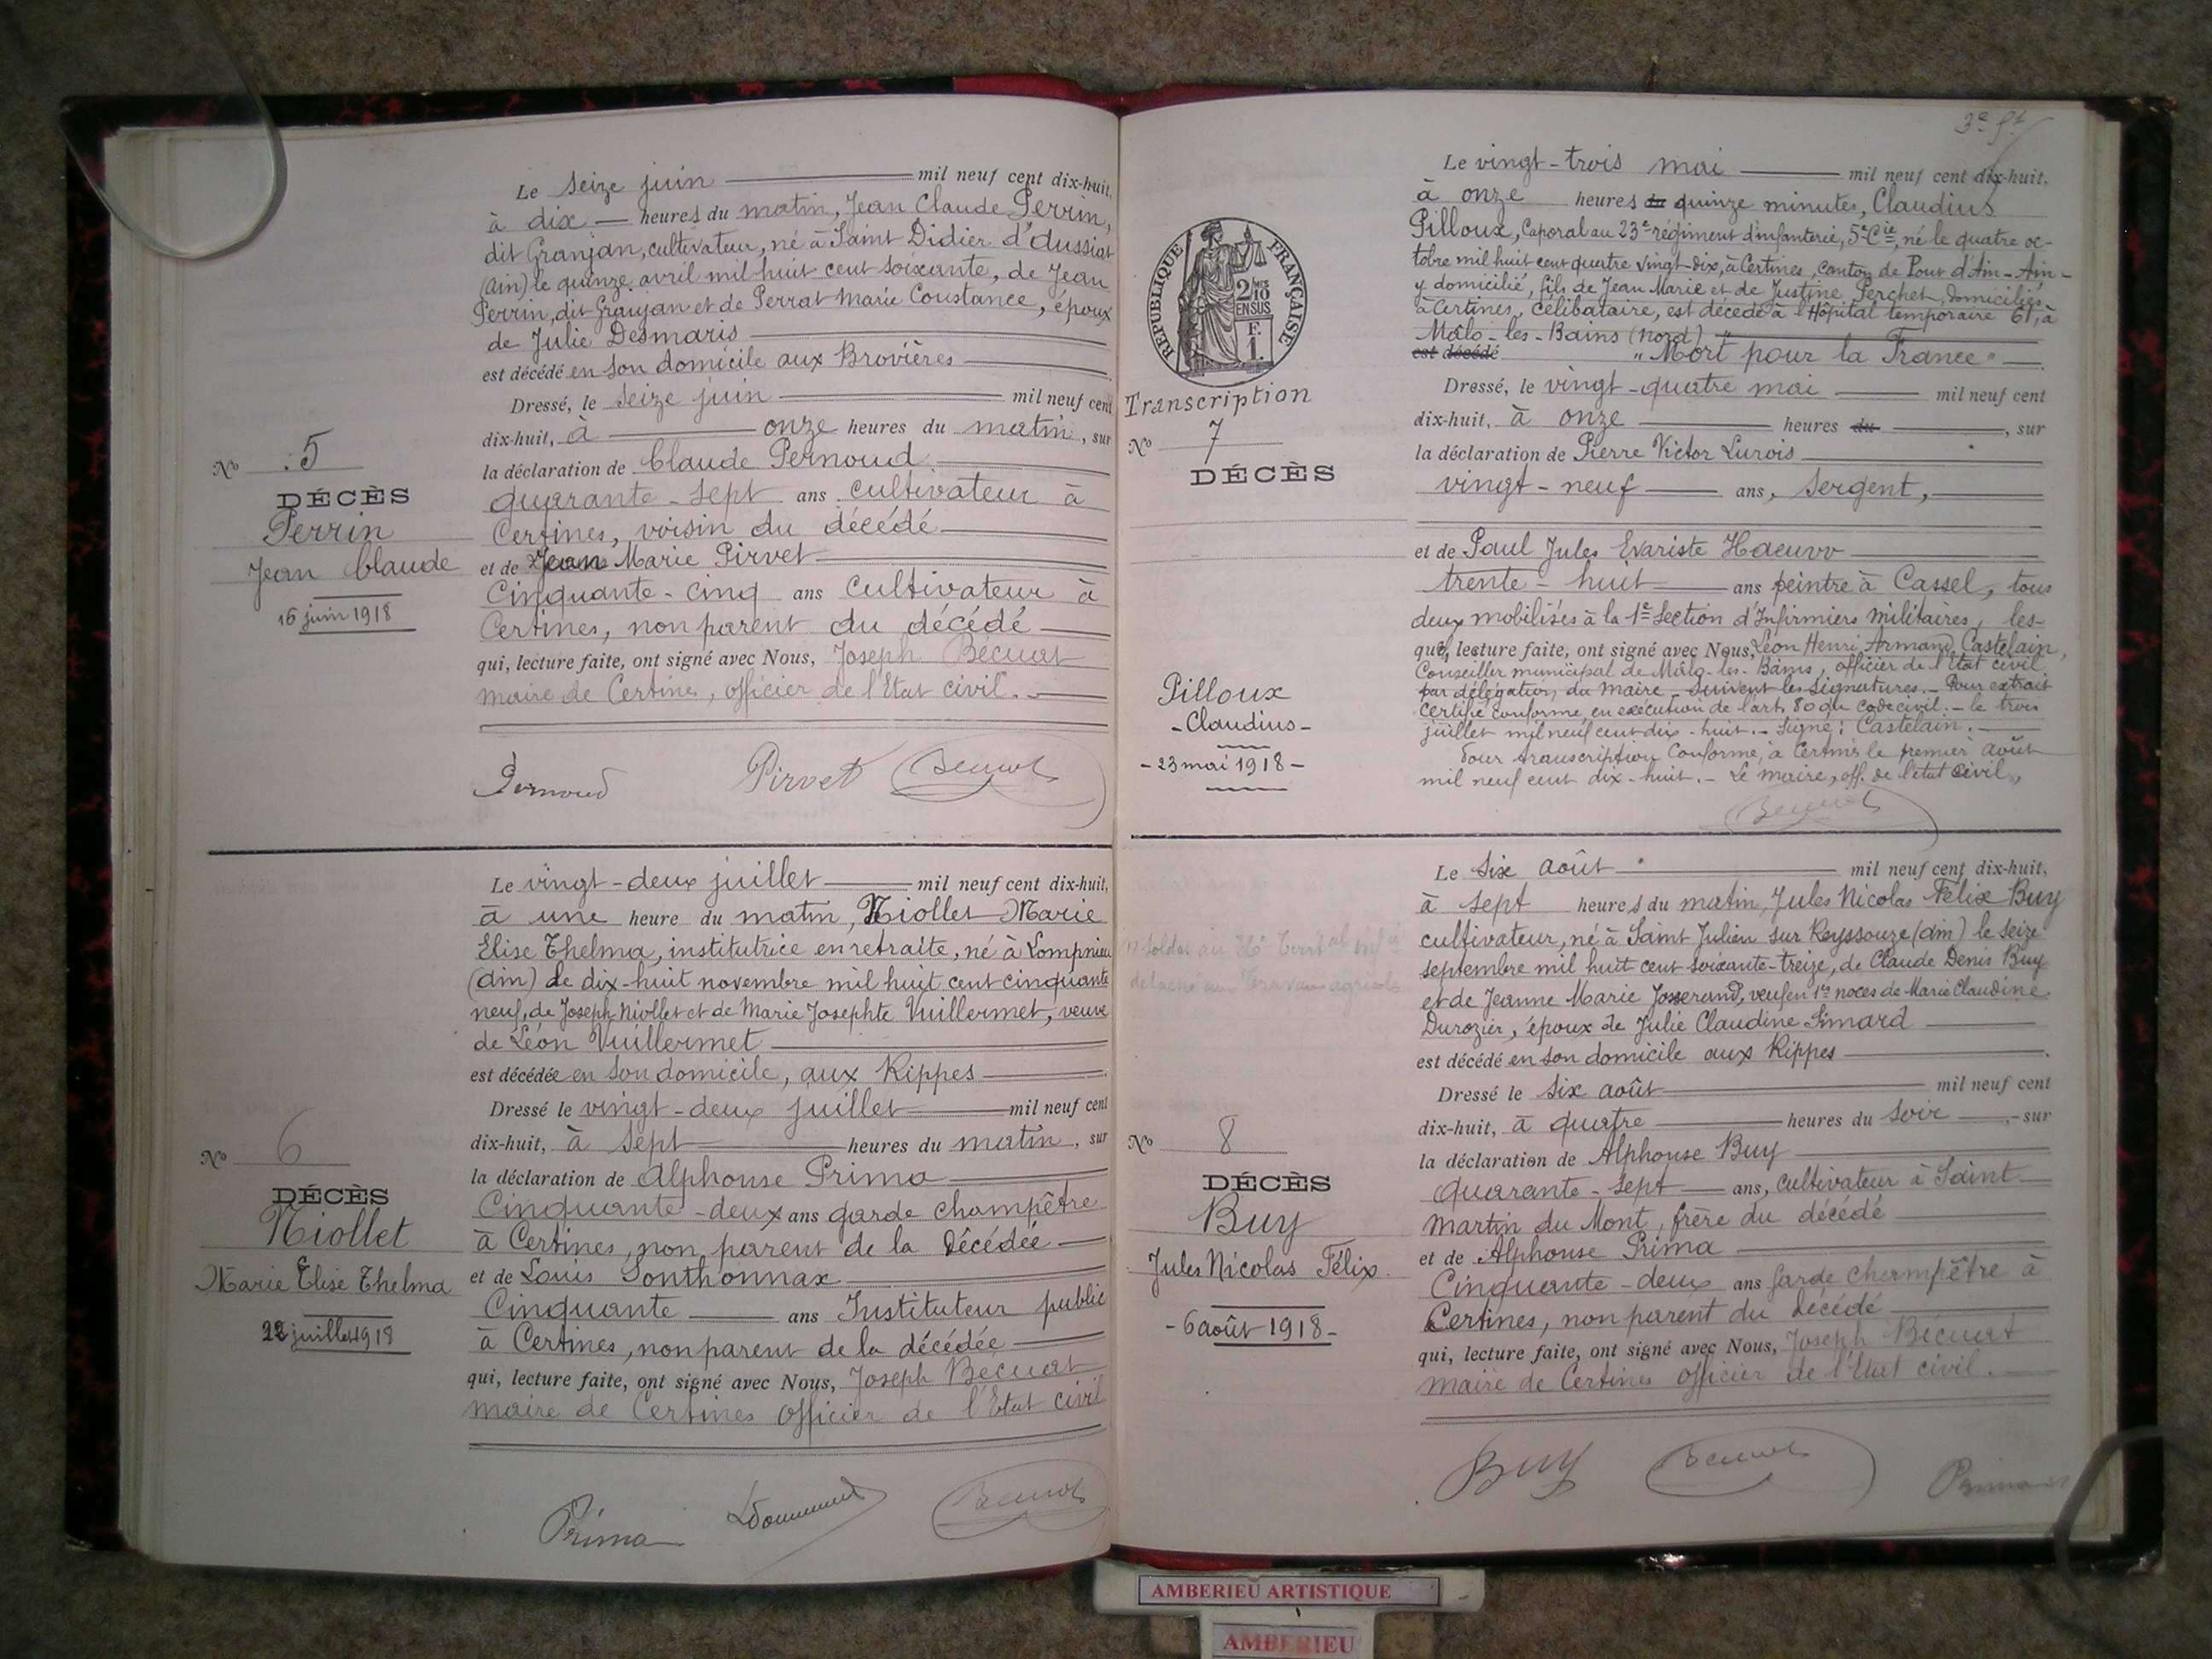 Le seize juin mil neuf cent dix-huit,
à dix heures du matin, Jean Claude Perrin,
dit Granjan, cultivateur, né à Saint Didier d'Aussiat
(Ain) le quinze avril mil huit cent soixante, de Jean
Perrin, dit Granjan et de Perrat Marie Constance, époux
de Julie Desmaris
est décédé en son domicile aux Brovières
Dressé, le seize juin mil neuf cent
dix-huit, à onze heures du matin, sur
la déclaration de Claude Pernoud
quarante-sept ans cultivateur à
Certines, voisin du décédé
et de Jean Marie Pirvet
Cinquante-cinq ans cultivateur à
Certines, non parent du décédé
qui, lecture faite, ont signé avec Nous, Joseph Bécuat
maire de Certines, officier de l'Etat civil.
Pernoud Pirvet Becuat
No 5
DÉCÈS
Perrin
Jean Claude
16 juin 1918
Le vingt-deux juillet mil neuf cent dix-huit,
à une heure du matin, Niollet Marie
Elise Thelma, institutrice en retraite, né à Lompnieu
(Ain) le dix-huit novembre mil huit cent cinquante
neuf, de Joseph Niollet et de Marie Josephte Vuillermet, veuve
de Léon Vuillermet
est décédée en son domicile, aux Rippes
Dressé le vingt-deux juillet mil neuf cent
dix-huit, à sept heures du matin, sur
la déclaration de Alphonse Prima
Cinquante-deux ans garde champêtre
à Certines, non parent de la décédée
et de Louis Sonthonnax
Cinquante ans Instituteur public
à Certines, non parent de la décédée
qui, lecture faite, ont signé avec Nous, Joseph Bécuat
maire de Certines officier de l'Etat civil
Prima Becuat
No 6
DÉCÈS
Niollet
Marie Elise Thelma
22 juillet 1918
3e ft
Le vingt-trois mai mil neuf cent dix-huit,
à onze heures du quinze minutes, Claudius
Pilloux, Caporal au 23e régiment d'infanterie, 5e Cie, né le quatre oc-
tobre mil huit cent quatre vingt-dix, à Certines, canton de Pont d'Ain - Ain -
y domicilié, fils de Jean Marie et de Justine Perchet, domiciliés
à Certines, célibataire, est décédé à l'Hôpital temporaire 61, à
Malo-les-Bains (Nord)
est décédé "Mort pour la France"
Dressé, le vingt-quatre mai mil neuf cent
dix-huit, à onze heures du, sur
la déclaration de Pierre Victor Lurois
vingt-neuf ans, Sergent,
et de Paul Jules Evariste Haeuvv
trente-huit ans peintre à Cassel, tous
deux mobilisés à la 1e Section d'Infirmiers militaires, les-
quels, lecture faite, ont signé avec Nous, Léon Henri Armand Castelain,
Conseiller municipal de Malo-les-Bains, officier de l'état civil
par délégation du maire - Suivent les signatures. - Pour extrait
certifié conforme, en exécution de l'art. 80 du code civil. - le trois
juillet mil neuf cent dix-huit. - Signé : Castelain.
Pour transcription conforme, à Certines le premier août
mil neuf cent dix-huit. - Le maire, off. de l'état civil,
Becuat
RÉPUBLIQUE FRANÇAISE
2/10 MES
EN SUS
F.
1.
Transcription
No 7
DÉCÈS
Pilloux
- Claudius -
- 23 mai 1918 -
Le six août mil neuf cent dix-huit,
à sept heures du matin, Jules Nicolas Félix Buy
cultivateur, né à Saint Julien sur Reyssouze (Ain) le seize
septembre mil huit cent soixante-treize, de Claude Denis Buy
et de Jeanne Marie Josserand, veuf en 1res noces de Marie Claudine
Durozier, époux de Julie Claudine Simard
est décédé en son domicile aux Rippes
Dressé le six août mil neuf cent
dix-huit, à quatre heures du soir, sur
la déclaration de Alphonse Buy
quarante-sept ans, cultivateur à Saint
Martin du Mont, frère du décédé
et de Alphonse Prima
Cinquante-deux ans garde champêtre à
Certines, non parent du décédé
qui, lecture faite, ont signé avec Nous, Joseph Bécuat
maire de Certines officier de l'Etat civil.
Buy Becuat Prima
No 8
DÉCÈS
Buy
Jules Nicolas Félix
- 6 août 1918 -
AMBERIEU ARTISTIQUE
AMBERIEU